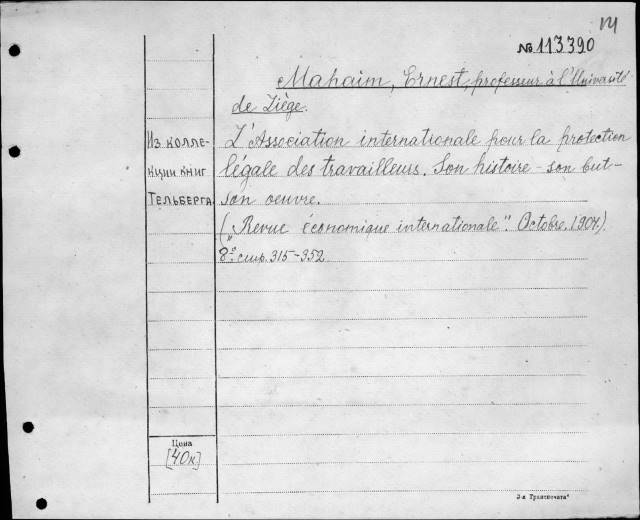 № 113390
Mahaim, Ernest, professeur à l'Université
de Liège.
Из колле-
кции книг
Тельберга
L'Association internationale pour la protection
légale des travailleurs. Son histoire - son but -
son oeuvre.
(„Revue économique internationale". Octobre. 1904.)
8° стр. 315-352
Цена
[40к]
3-я Транспечать"